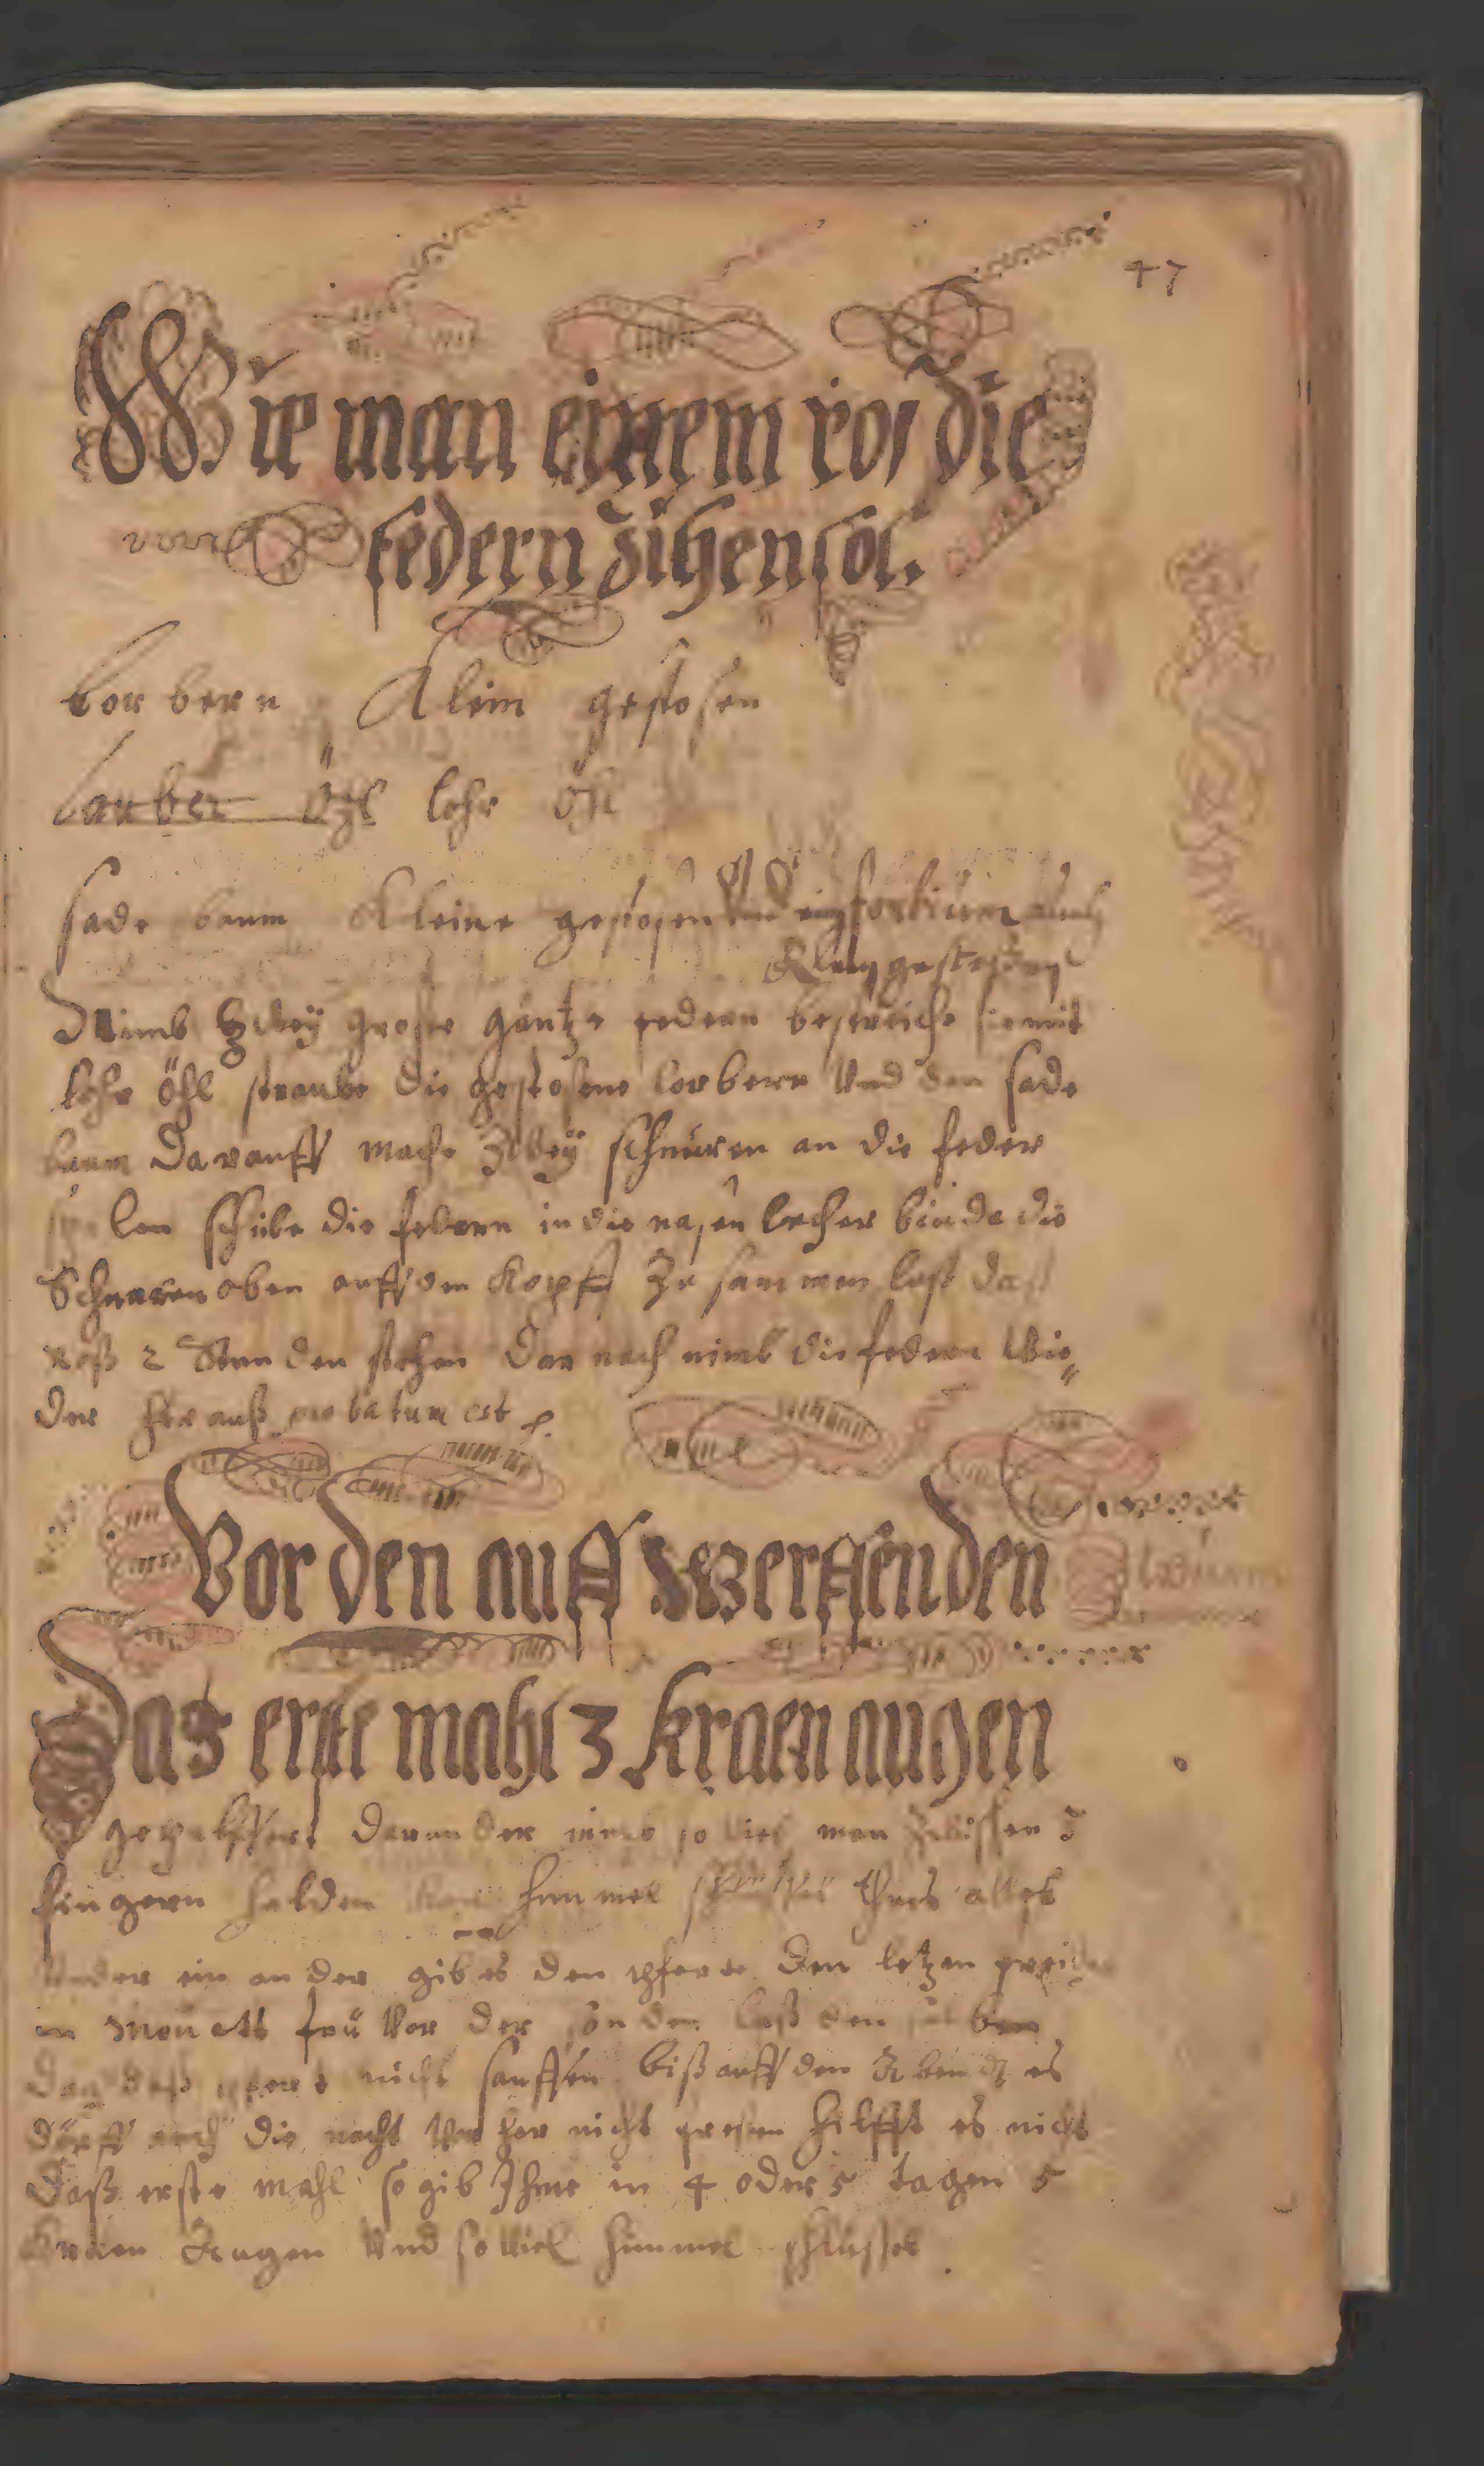 47
Wie man einem ros die
federn Zihen sol.
lorbern Klein gestosen
lauber Öhl lohr öhl
sade baum Kleine gestosen Vnd eüfforbium auch
Klein gestosen
Nimb Zwey grose gäntze federn bestreiche sie mit
lohr öhl straube die gestosene lorbern Vnd den sade
baum darauff mache Zwey schnüren an die feder
len schübe die federn in die nasen lecher binde die
Schnuren oben auff dem Kopff Zu sammen lass daß
roß 2 Stunden stehen dar nach nimb die federn Wie„
der heraus probatum est
Vor den auff werffenden
Wurm
Das erste mahl 3 kraen augen
gepulffert darunder so viel man Zwissen 3
fingern halden kan himmel schlüssel thues alles
Vnder ein an der gib es den pferte den letzen
Monetts frü Vor der sonden laß den
dag daß pfert nicht sauffen biß auff den Abendt es
dörff auch die nacht Vor her nicht fresen hilfft es nicht
daß erste mahl so gib Ihme in 4 oder 5 tagen 5
kraen Augen Vnd so Viel himmel schlüssel